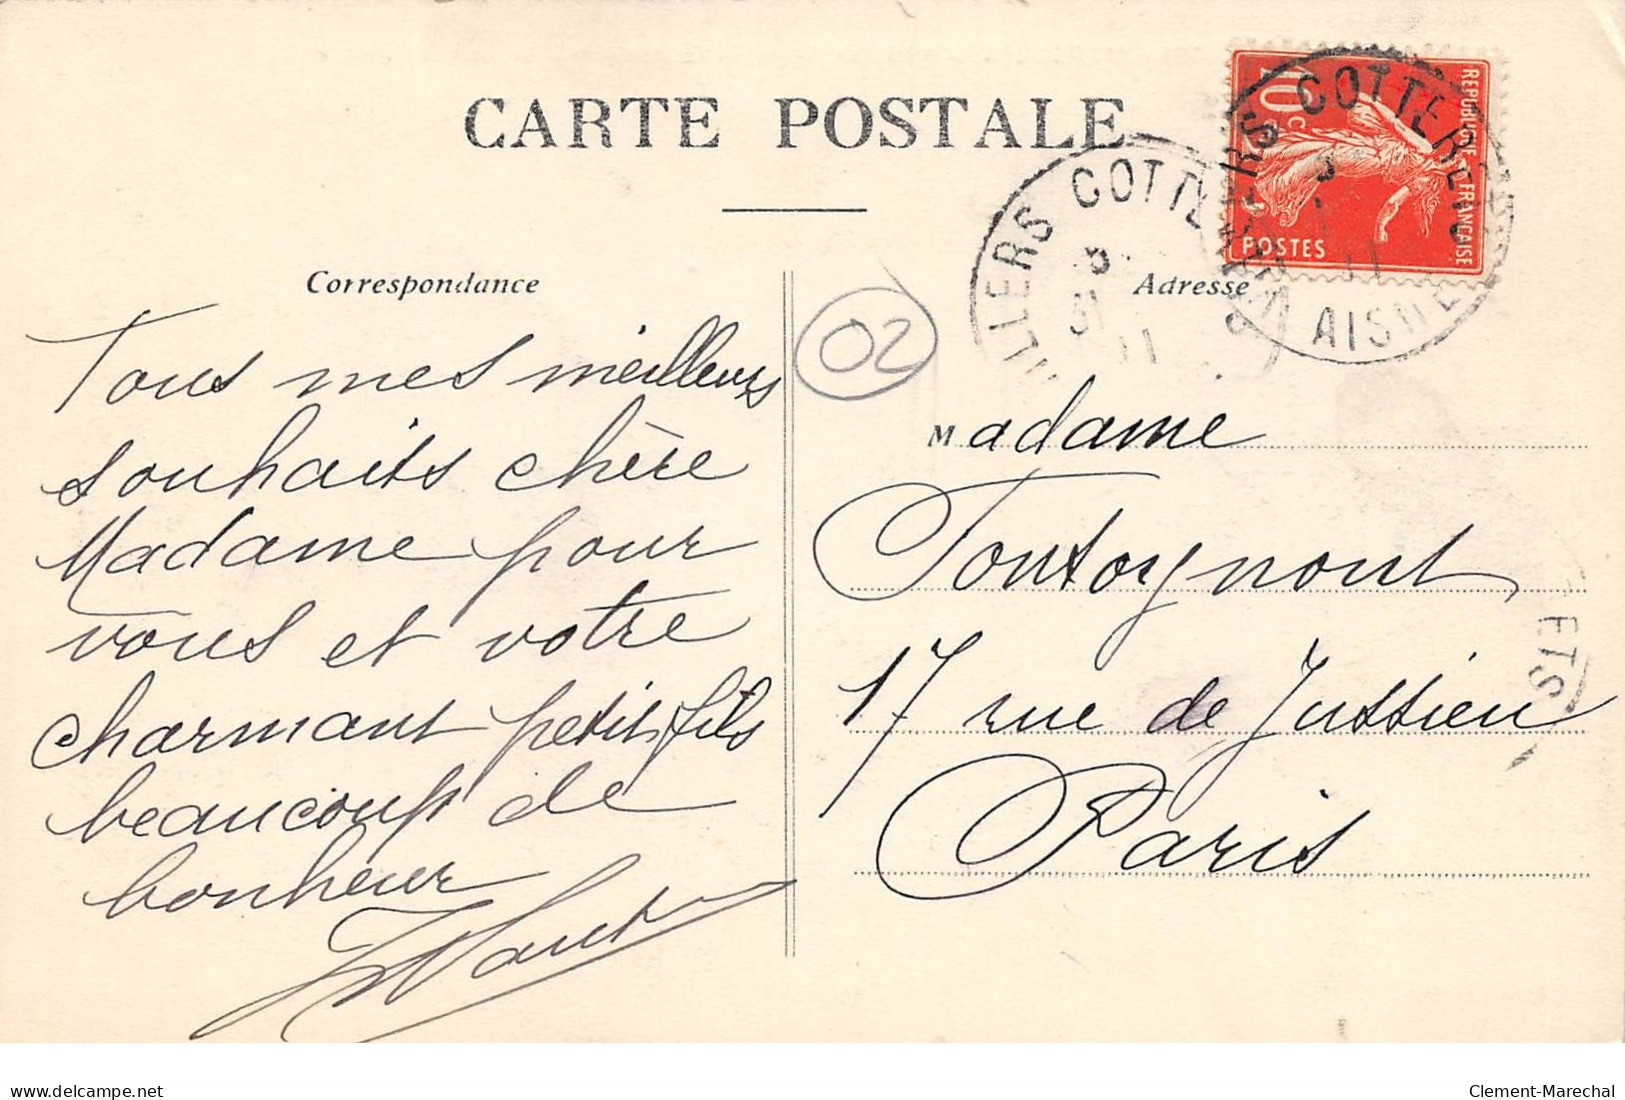 CARTE POSTALE
Correspondance
Tous mes meilleurs
souhaits chère
Madame pour
vous et votre
charmant petit fils
beaucoup de
bonheur
02
Adresse
Madame
Tontoynont
17 rue de Jussieu
Paris
10c
REPUBLIQUE FRANÇAISE
POSTES
COTTERETS
AISNE
ILLERS COTTE
ETS
delcampe.net
Clement-Marechal